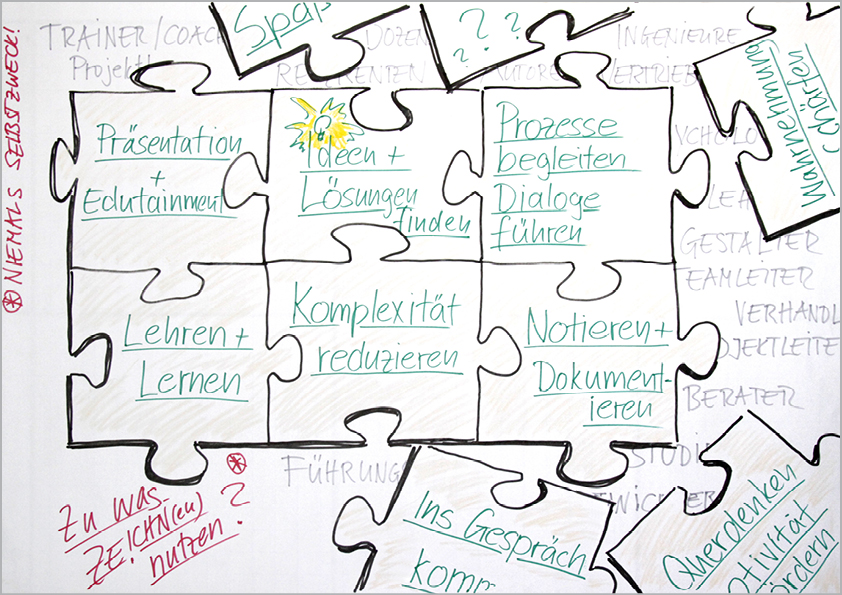 TRAINER/COACH
Projektl
Spaß
DOZEN
REFERENTEN
? ? ?
AUTORE
INGENIEURE
VERTRIEB
Wahrnehmung
schärfen
* NIEMALS SELBSTZWECK!
Präsentation
+
Edutainment
Ideen +
Lösungen
finden
Prozesse
begleiten
Dialoge
führen
YCHOLO
LEH
GESTALTER
TEAMLEITER
VERHANDL
OJEKTLEITE
BERATER
Lehren +
Lernen
Komplexität
reduzieren
Notieren +
Dokument-
ieren
FÜHRUNGS
STUDI
TWICKLER
Zu was *
ZEICHN(en)
nutzen?
Ins Gespräch
komm
Querdenken
otivität
ördern